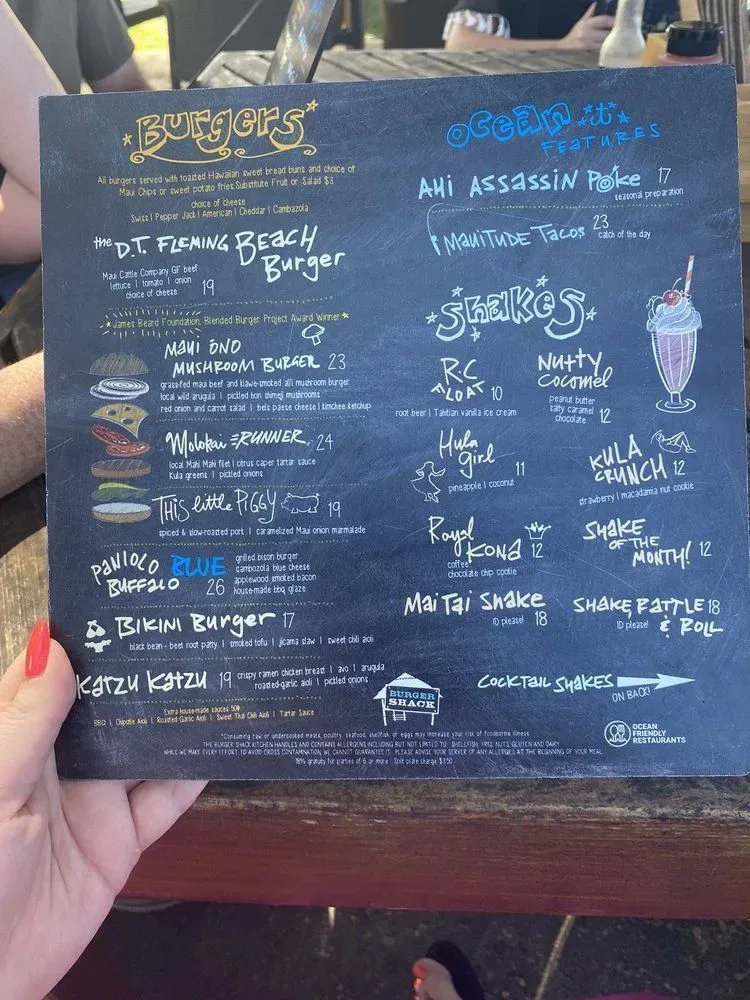 Burgers
All burgers served with toasted Hawaiian sweet bread buns and choice of
Maui Chips or sweet potato fries Substitute Fruit or Salad $3
choice of cheese
Swiss | Pepper Jack | American | Cheddar | Cambazola
the D.T. Fleming Beach
Burger
Maui Cattle Company GF beef
lettuce | tomato | onion
choice of cheese 19
James Beard Foundation, Blended Burger Project Award Winner
Maui Ono
Mushroom Burger 23
grass-fed maui beef and kiawe-smoked ali'i mushroom burger
local wild arugula | pickled hon shimeji mushrooms
red onion and carrot salad | bel's paese cheese | kimchee ketchup
Molokai Runner 24
local Mahi Mahi filet | citrus caper tartar sauce
Kula greens | pickled onions
This little Piggy 19
spiced & slow-roasted pork | caramelized Maui onion marmalade
Paniolo BLUE
Buffalo 26
grilled bison burger
cambozola blue cheese
applewood smoked bacon
house-made bbq glaze
Bikini Burger 17
black bean - beet root patty | smoked tofu | jicama slaw | sweet chili aioli
Katzu Katzu 19 crispy ramen chicken breast | avo | arugula
roasted-garlic aioli | pickled onions
Extra house-made sauces 50¢
BBQ | Chipotle Aioli | Roasted Garlic Aioli | Sweet Thai Chili Aioli | Tartar Sauce
Ocean it
Features
Ahi Assassin Poke 17
seasonal preparation
Mauitude Tacos 23
catch of the day
Shakes
RC
Float 10
root beer | Tahitian vanilla ice cream
Nutty
Cocomel
peanut butter
salty caramel
chocolate 12
Hula
girl 11
pineapple | coconut
Kula
Crunch 12
strawberry | macadamia nut cookie
Royal
Kona 12
coffee
chocolate chip cookie
Shake
of the
Month! 12
Mai Tai Shake
ID please! 18
Shake, Rattle 18
ID please! & Roll
Cocktail Shakes
ON BACK!
BURGER
SHACK
OCEAN
FRIENDLY
RESTAURANTS
*Consuming raw or undercooked meats, poultry, seafood, shellfish or eggs may increase your risk of foodborne illness.
THE BURGER SHACK KITCHEN HANDLES AND CONTAINS ALLERGENS INCLUDING BUT NOT LIMITED TO: SHELLFISH, TREE NUTS, GLUTEN AND DAIRY.
WHILE WE MAKE EVERY EFFORT TO AVOID CROSS CONTAMINATION, WE CANNOT GUARANTEE IT. PLEASE ADVISE YOUR SERVER OF ANY ALLERGIES AT THE BEGINNING OF YOUR MEAL.
18% gratuity for parties of 6 or more. Split plate charge $3.50